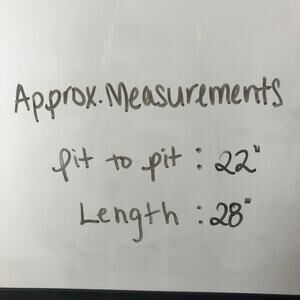 Approx. Measurements
pit to pit : 22"
Length : 28"